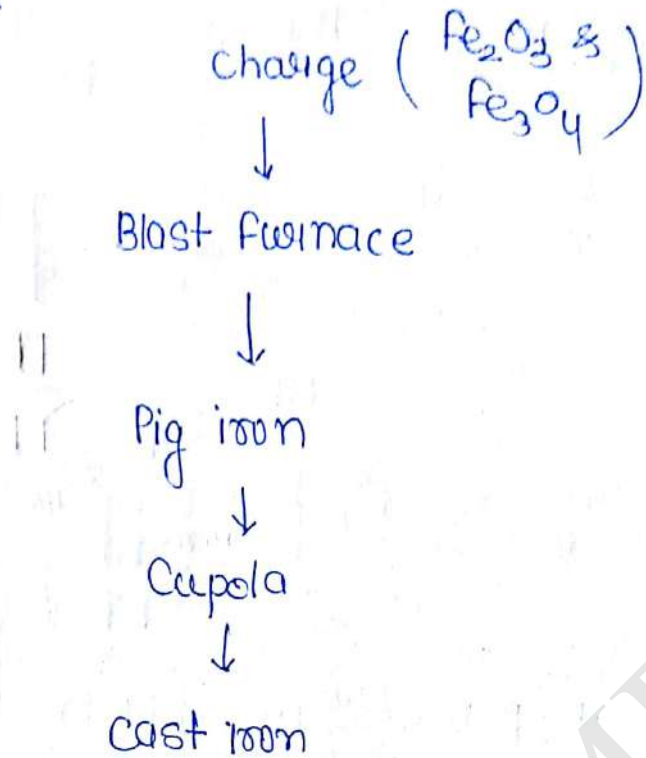 Charge ( Fe₂O₃ &
Fe₃O₄ )
↓
Blast furnace
↓
Pig iron
↓
Cupola
↓
Cast iron